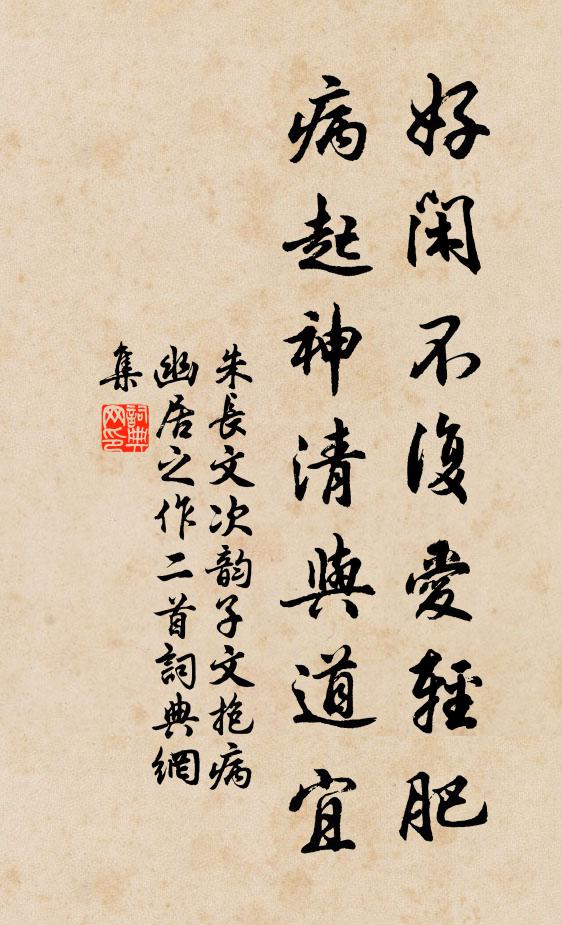 好閑不復愛輕肥
病起神清與道宜
朱長文次韵子文抱病
幽居之作二首詞典網
集
詞典
网印